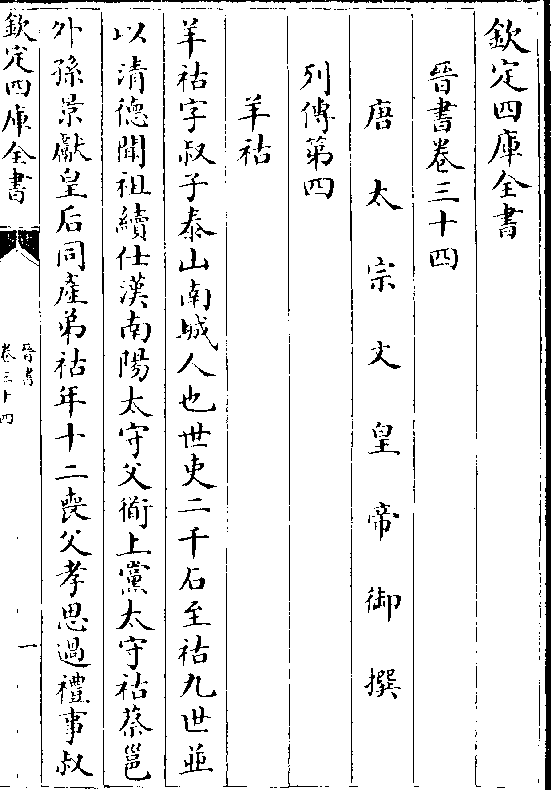 欽定四庫全書
晉書卷三十四
唐太宗文皇帝御撰
列傳第四
羊祜
羊祜字叔子泰山南城人也世吏二千石至祜九世並
以清德聞祖續仕漢南陽太守父衜上黨太守祜蔡邕
外孫景獻皇后同產弟祜年十二喪父孝思過禮事叔
欽定四庫全書
晉書
卷三十四
一